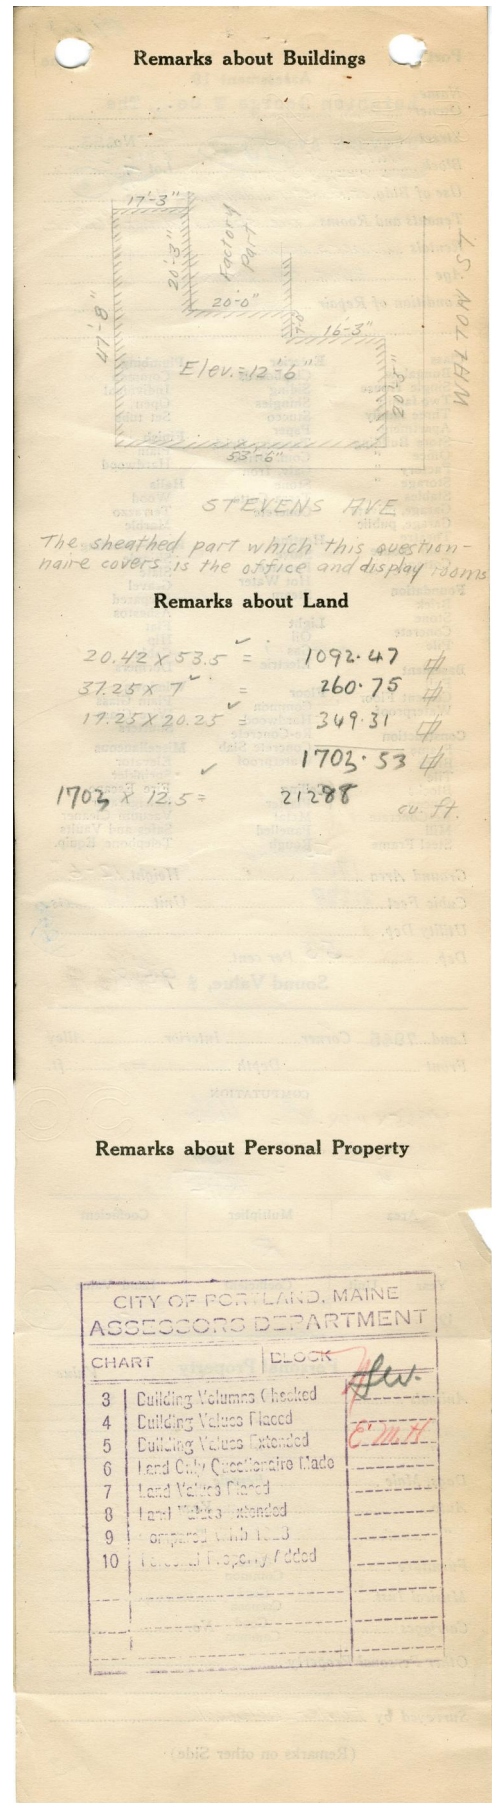 Remarks about Buildings
17'-3"
Factory
Part
20'-3"
47'-8"
20'-0"
7'-0"
16'-3"
WALTON ST.
Elev. = 12-6"
20'-5"
53'-6"
STEVENS AVE
The sheathed part which this question-
naire covers is the office and display rooms
Remarks about Land
20.42 x 53.5 ✓ = 1092.47
37.25 x 7 ✓ = 260.75
17.25 x 20.25 ✓ = 349.31
1702.53
1703 x 12.5 ✓ = 21288 cu. ft.
Remarks about Personal Property
CITY OF PORTLAND, MAINE
ASSESSORS DEPARTMENT
CHART BLOCK
3 Building Volumes Checked
4 Building Values Placed
5 Building Values Extended E.M.H
6 Land Only Questionaire Made
7 Land Values Placed
8 Land Values Extended
9 Compared With
10 Personal Property Added